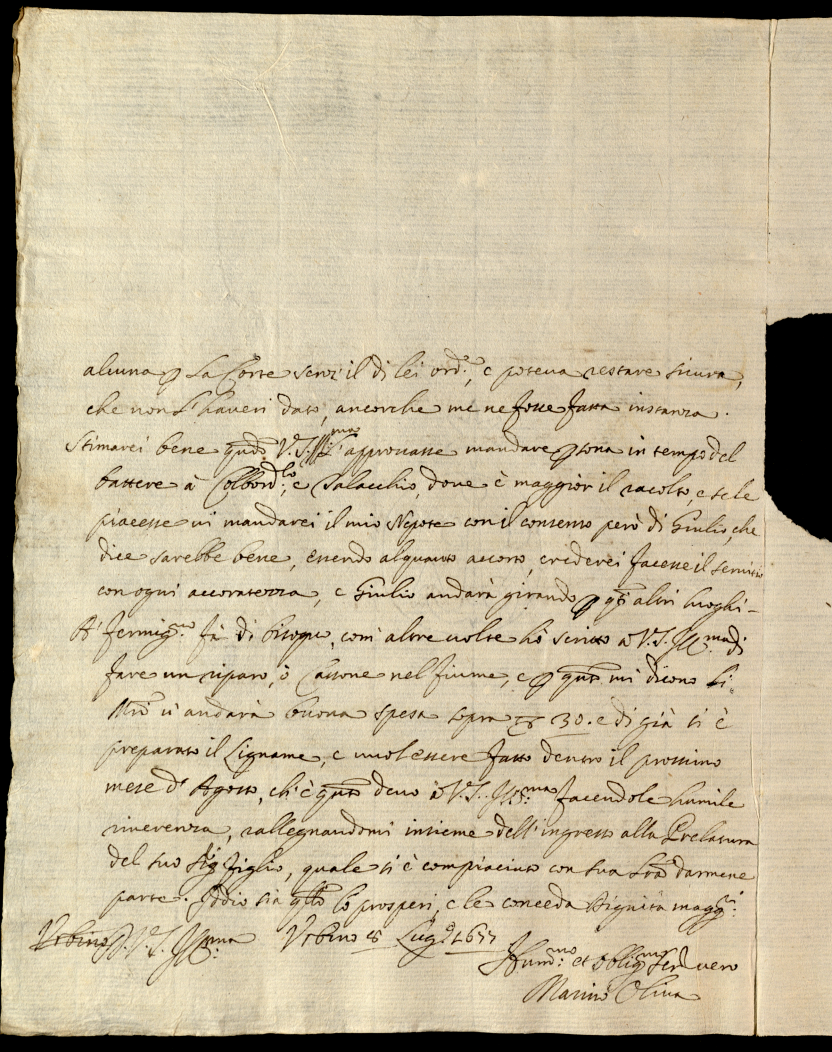 alcuna p La Corte senz'il di lei ord.e, e poteva restare sicura,
che non l'haverei dato, ancorche me ne fosse fatta instanza.
Stimarei bene qndo V.S. Ill.ma l'approvasse mandare psona in tempo del
battere à Colbord.lo, e Salacchio, dove è maggior il racolto, e se le
piacesse vi mandarei il mio Nepote con il consenso però di Giulio, che
dice sarebbe bene, essendo alquanto accorto, crederei facesse il servitio
con ogni accuratezza, e Giulio andarà girando p gli altri luoghi-
A' Fermig.no fà di bisogno, com'altre volte hò scritto à V.S. Ill.ma di
fare un riparo, ò Cassone nel fiume, e p qnto mi dicono li
Mri vi andarà buona spesa sopra 30. e di già si è
preparato il Ligname, e vuol essere fatto dentro il prossimo
mese d'Agosto, ch'è qnto devo à V.S. Ill.ma facendole humile
riverenza, rallegrandomi insieme dell'ingresso alla Prelatura
del suo Sig. figlio, quale si è compiaciuto con sua lra darmene
parte. Iddio sia qllo lo prosperi, e le conceda dignità magg.ri
Urbino D. V. S. Ill.ma Urbino 8 Lug.o 1677
Hum.mo et oblig.mo Ser.e vero
Marino Oliva